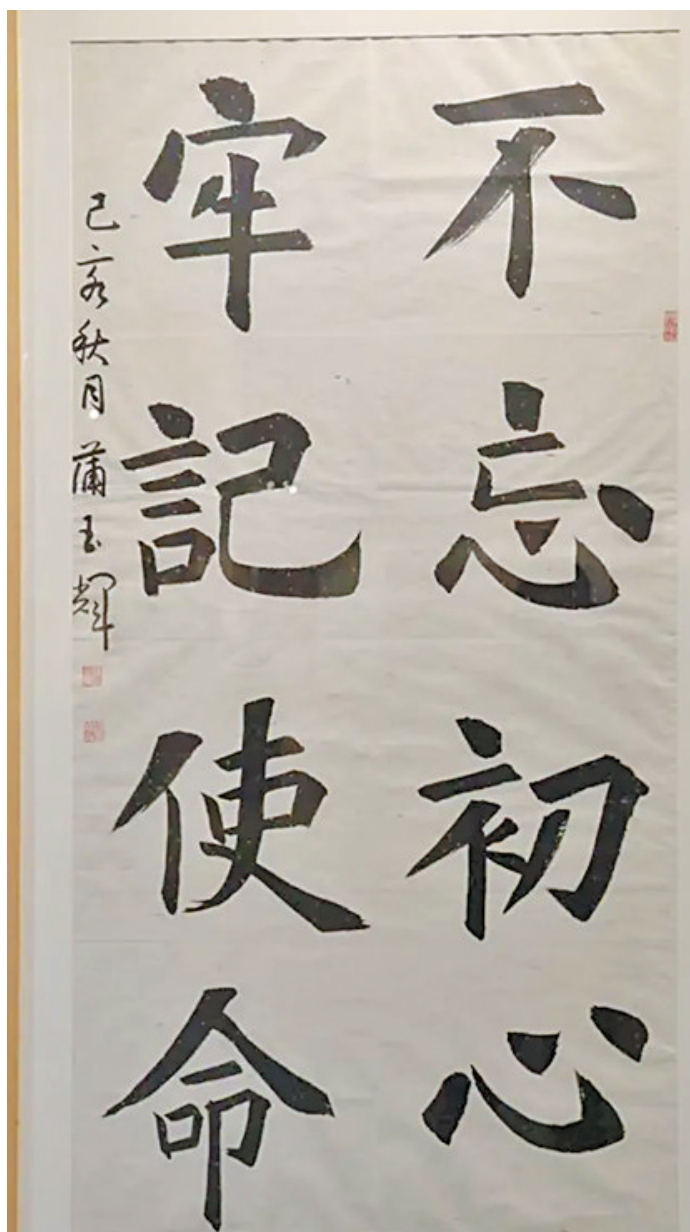 不忘初心
牢記使命
己亥秋月 蒲玉輝